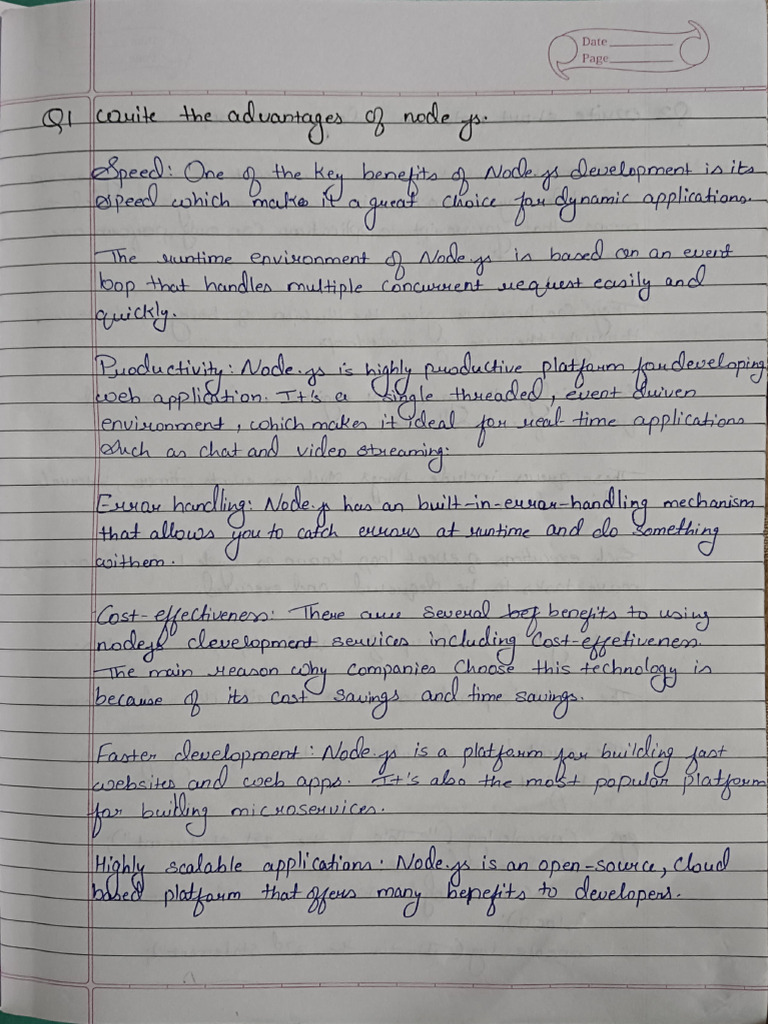 Date
Page
Q1 write the advantages of node js.
Speed: One of the key benefits of Node.js development is its
speed which makes it a great choice for dynamic applications.
The runtime environment of Node.js is based on an event
loop that handles multiple concurrent request easily and
quickly.
Productivity: Node.js is highly productive platform for developing
web application. It's a single threaded, event driven
environment, which makes it ideal for real-time applications
such as chat and video streaming.
Error handling: Node.js has an built-in-error-handling mechanism
that allows you to catch errors at runtime and do something
withem.
Cost-effectiveness: There are several bef benefits to using
nodejs development services including cost-effetiveness.
The main reason why companies choose this technology is
because of its cost savings and time savings.
Faster development: Node.js is a platform for building fast
websites and web apps. It's also the most popular platform
for builing microservices.
Highly scalable applications: Node.js is an open-source, cloud
based platform that offers many benefits to developers.